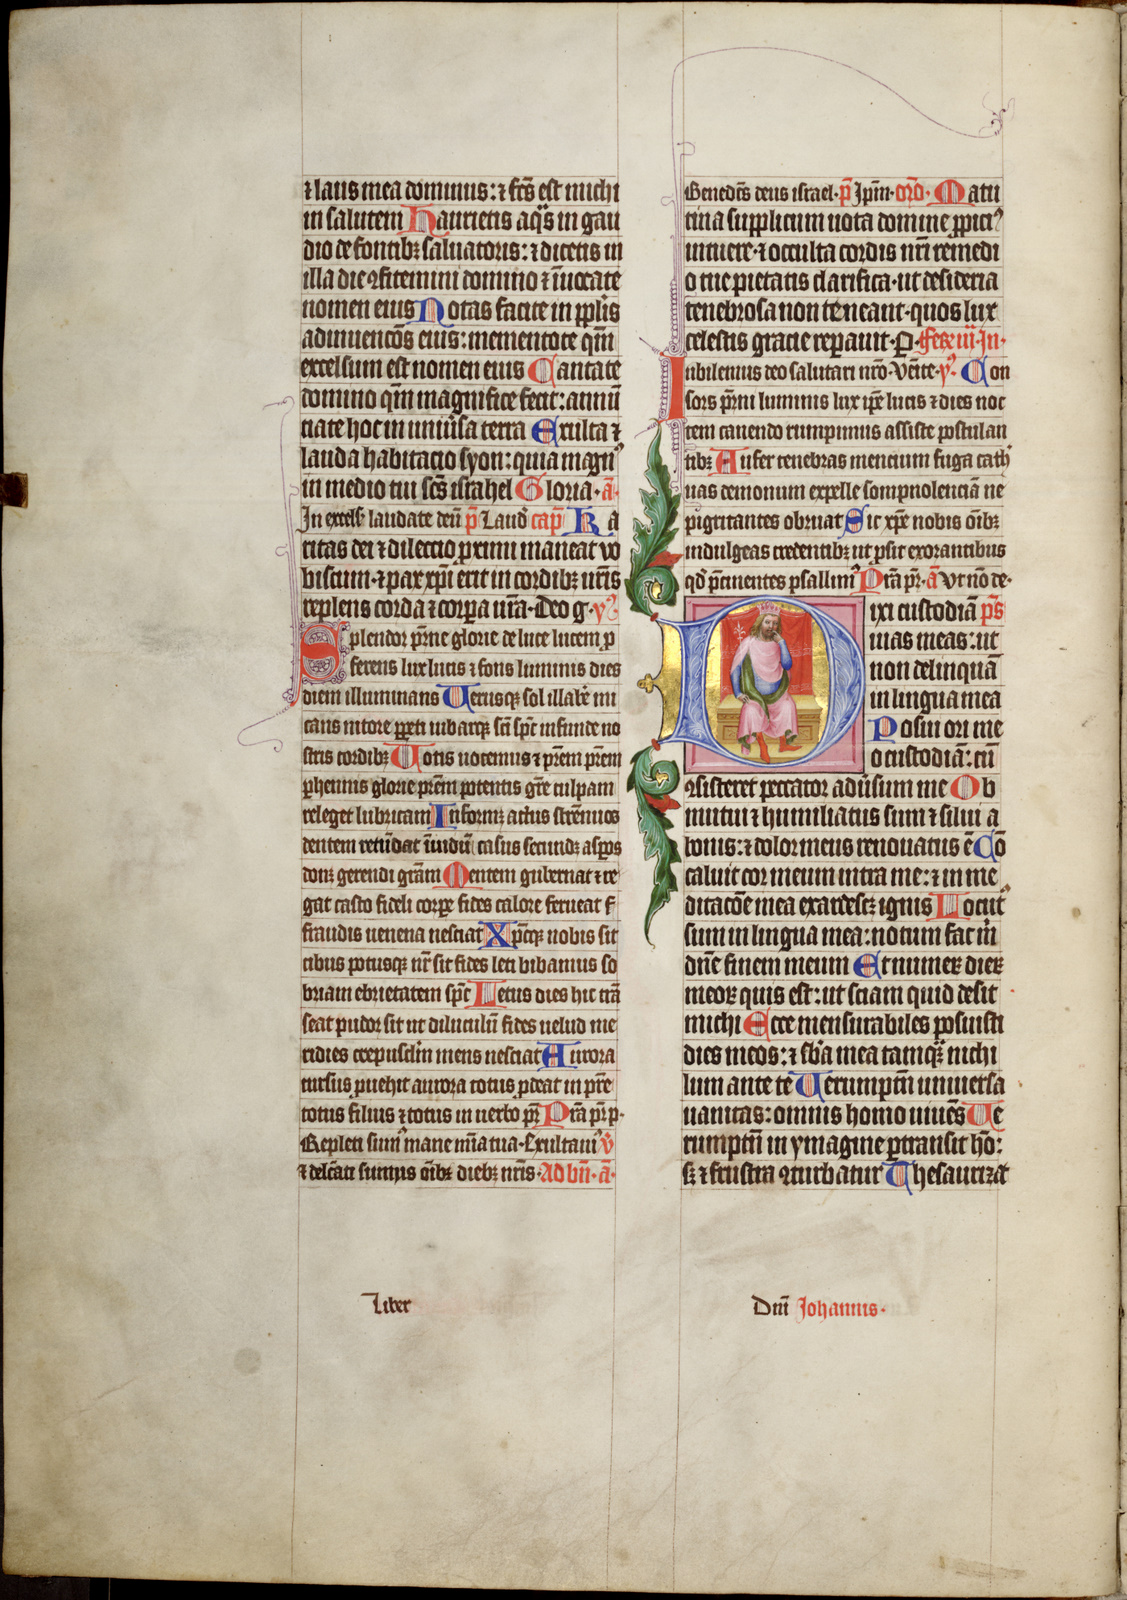 ⁊ laus mea dominus: ⁊ fc̄s est michi
in salutem Haurietis aq̄s in gau
dio de fontibꝫ saluatoris: ⁊ dicetis in
illa die ꝯfitemini domino ⁊ īuocate
nomen eius Notas facite in pp̄lis
adinuenc̄ōs eius: mementote qm̄
excelsum est nomen eius Cantate
domino qm̄ magnifice fecit: annū
ciate hoc in uniūsa terra Exulta ⁊
lauda habitacio syon: quia magn᷒
in medio tui sc̄s israhel Gloria · a̅ ·
In excelꝭ laudate deū p̄ Laud̄ cap̄ Ka
ritas dei ⁊ dileccio ꝓximi maneat vo
biscum · ⁊ pax xp̄i erit in cordibꝫ ur̄is
replens corda ⁊ corꝑa ur̄a · Deo g · y᷒
Splendor pr̄ne glorie de luce lucem ꝓ
ferens lux lucis ⁊ fons luminis dies
diem illuminans Uerusqꝫ sol illabē mi
cans nitore ꝑpeti iubarqꝫ sc̄i sp̄c infunde no
stris cordibꝫ Uotis uocemus ⁊ pr̄em pr̄em
ꝑhennis glorie pr̄em potentis gr̄e culpam
releget lubricam Informꝫ actus strēnuos
dentem retūdat īuidū casus secundꝫ asꝑos
donꝫ gerendi gr̄am Mentem gubernat ⁊ re
gat casto fideli corꝑe fides calore ferueat f
fraudis uenena nesciat Xp̄cqꝫ nobis sit
cibus potusqꝫ nr̄ sit fides leti bibamus so
briam ebrietatem sp̄c Letus dies hic trā
seat pudor sit ut diluculū fides uelud me
ridies crepusclm̄ mens nesciat Aurora
cursus ꝓuehit aurora totus ꝓdeat in pr̄e
totus filius ⁊ totus in uerbo pr̄ Pr̄a pr̄ p ·
Repleti sum᷒ mane mīa tua · Exultaui᷒ v̄
⁊ delc̄ati sum᷒ oībꝫ diebꝫ nr̄is · Ad bn̄ · a̅ ·
Benedc̄s deus israel · p̄ Ip̄m · or̄o · Matu
tina supplicum uota domine ꝓpici᷒
intuere · ⁊ occulta cordis nr̄i remedi
o tue pietatis clarifica · ut desideria
tenebrosa non teneant · quos lux
celestis gracie reparauit · P · Fer̄e iii · In ·
Iubilemus deo salutari nr̄o · Venite · y᷒ · Con
sors pr̄ni luminis lux ip̄e lucis ⁊ dies noc
tem canendo rumpimus assiste postulan
tibꝫ Aufer tenebras mencium fuga cath̄
uas demonum expelle sompnolenciā ne
pigritantes obruat Sic xp̄e nobis oībꝫ
indulgeas credentibꝫ ut ꝓsit exorantibus
qd̄ p̄cinentes psallim᷒ Pr̄a pr̄ · a̅ Vt nō de ·
Dixi custodiā p̄s
uias meas: ut
non delinquā
in lingua mea
Posui ori me
o custodiā: cū
ꝯsisteret peccator aduūsum me Ob
mutui ⁊ humiliatus sum ⁊ silui a
bonis: ⁊ dolor meus renouatus ē Cō
caluit cor meum intra me: ⁊ in me
ditac̄oe mea exardescꝫ ignis Locut᷒
sum in lingua mea: notum fac m̄
dn̄e finem meum Et numeꝝ dieꝝ
meoꝝ quis est: ut sciam quid desit
michi Ecce mensurabiles posuisti
dies meos: ⁊ sb̄a mea tamqꝫ nichi
lum ante te Uerumptn̄ uniuersa
uanitas: omnis homo uiuēs Ue
rumptn̄ in ymagine ꝑtransit hō:
sꝫ ⁊ frustra ꝯturbatur Thesaurizat
Liber
Dm̄ Johannis ·